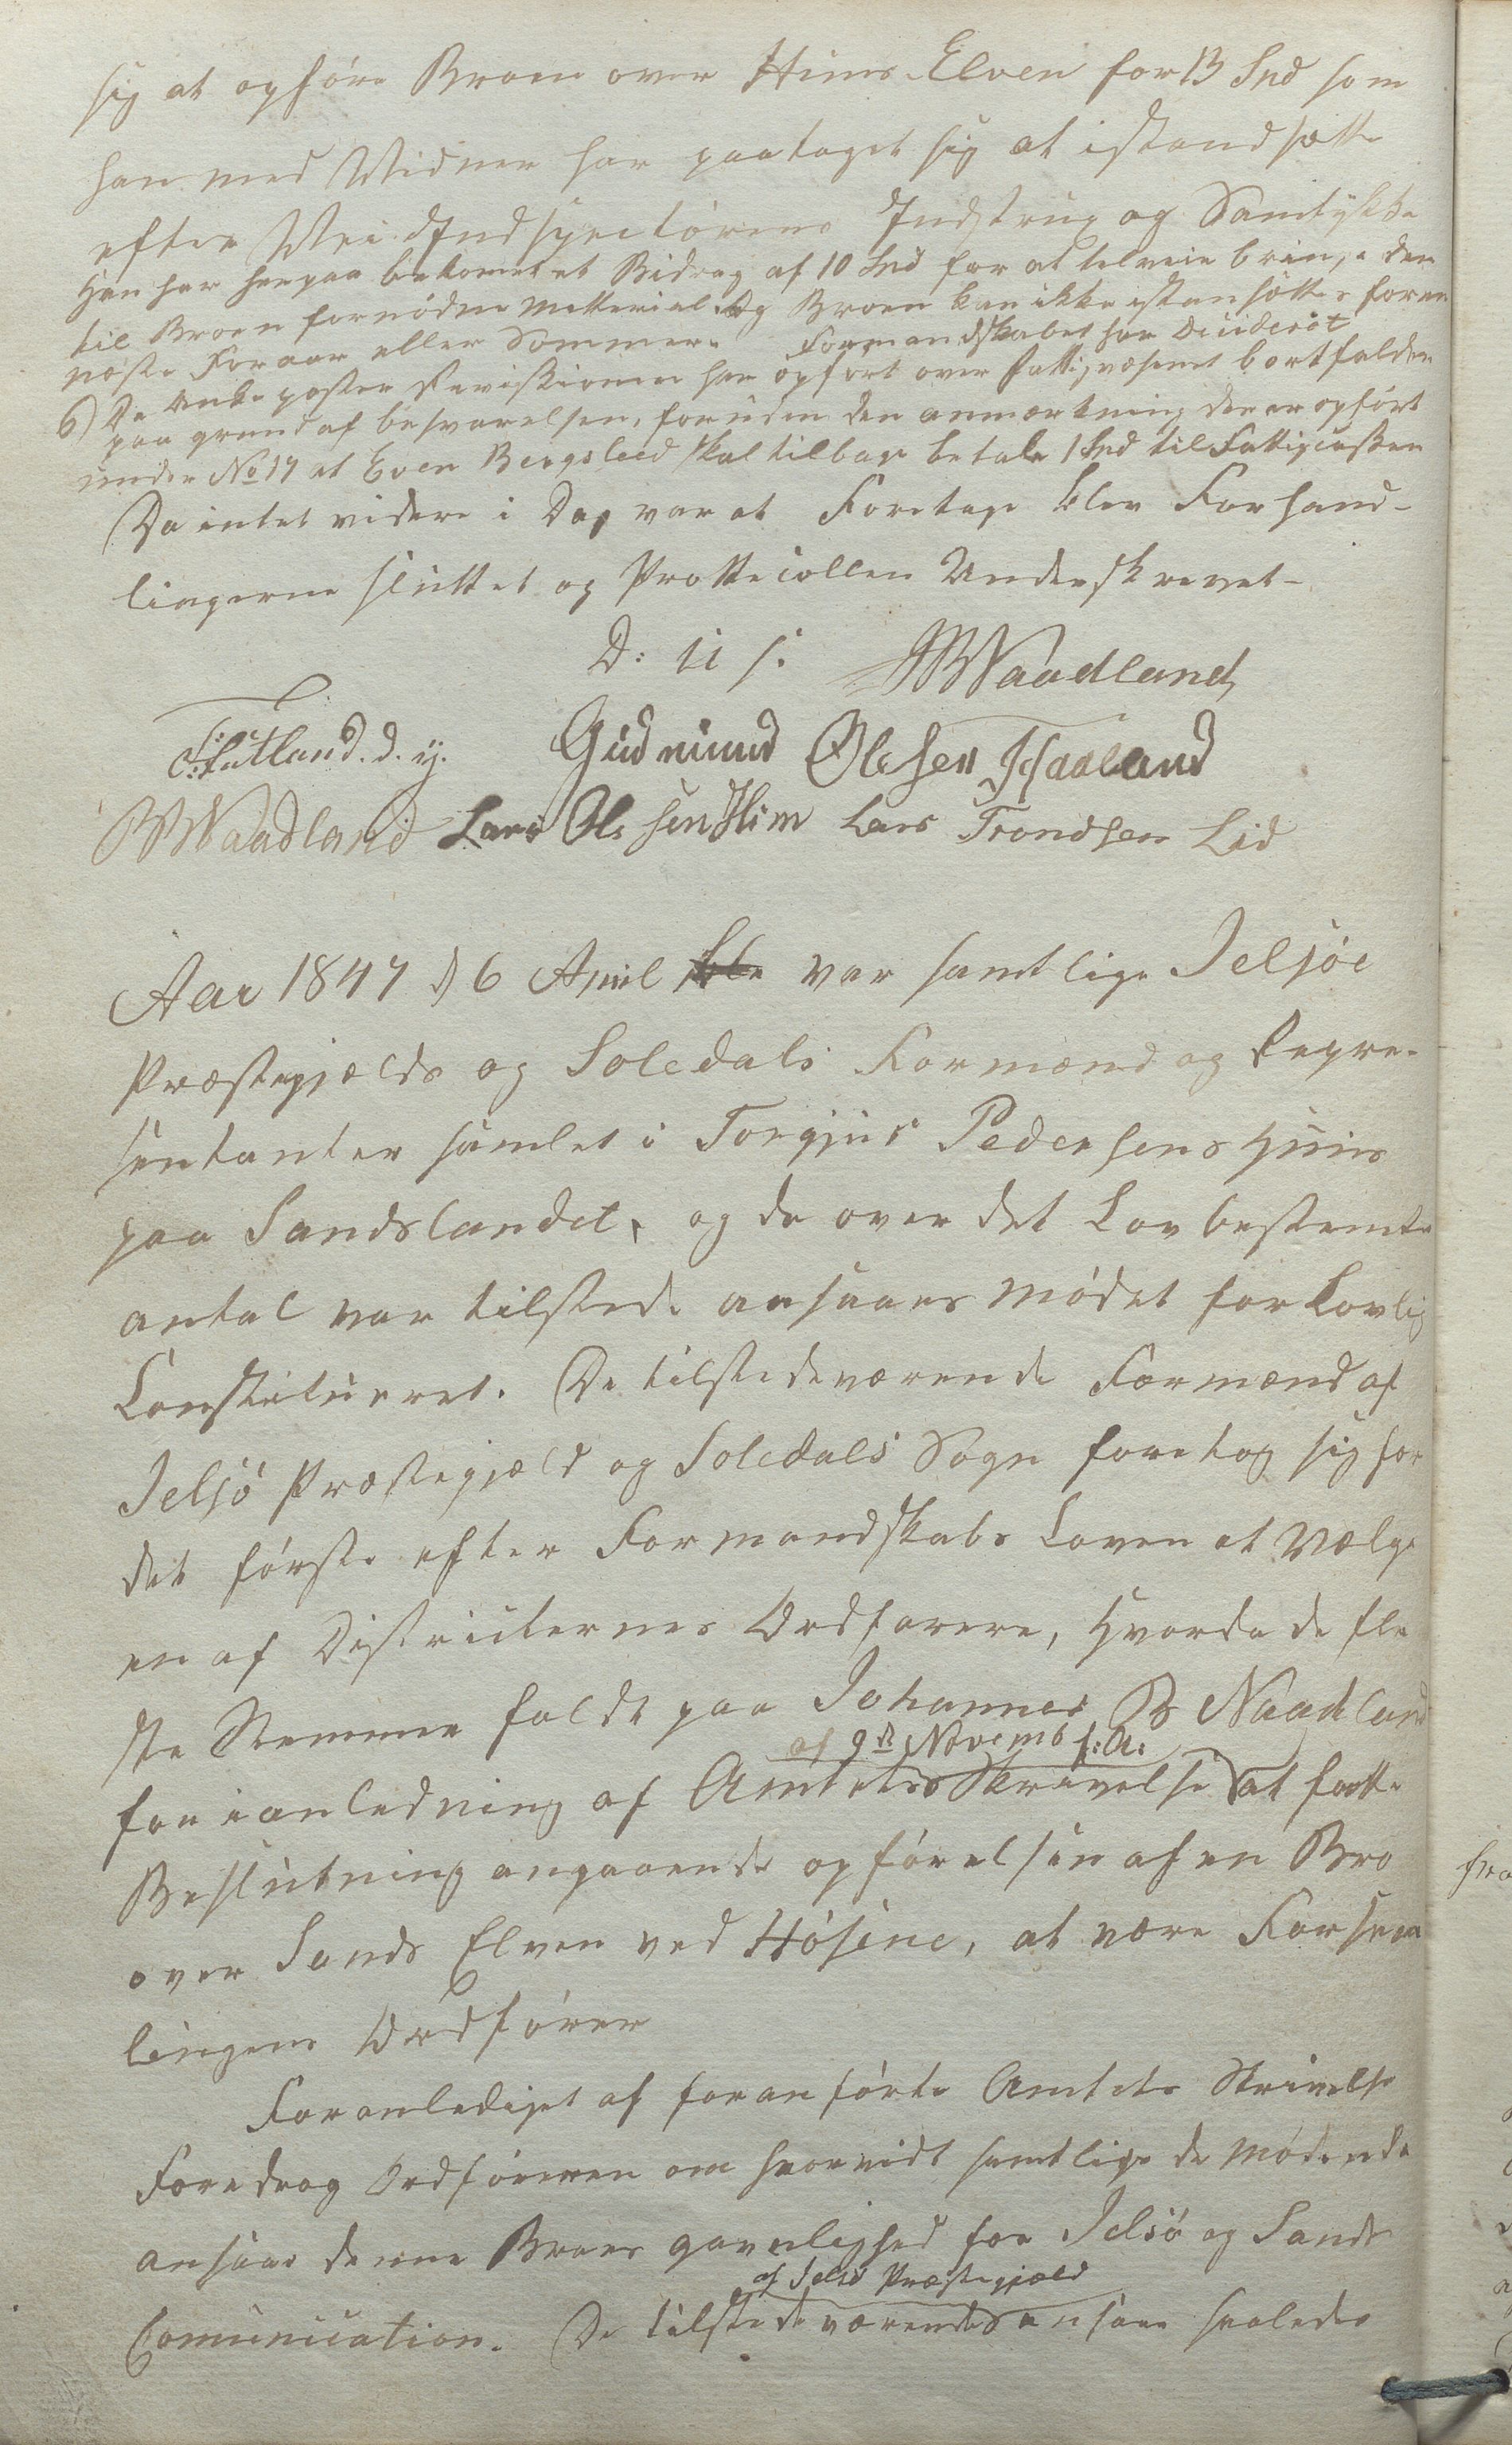 sig at opføre Broen over Hims-Elven for 13 Spd som
han med Vidner har paataget sig at istandsætte
efter Vei Indspectørens Indstrux og Samtykke
Han har herpaa bekomet et Bidrag af 10 Spd for at tilveie bringe den
til Broen fornødne Matterial. Og Broen kan ikke istansættes foren
næste Foraar eller Sommer.
6) De Anke poster Revissionen har opført over Fattigvæsenet Formandskabet har Deciderèt bortfalder
paa grund af besvarelsen, foruden den anmærkning der er opført
under No 17 at Even Bergslied skal tilbage betale 1 Spd til Fattigcassen
Da intet videre i Dag var at Foretage blev Forhand-
lingerne sluttet og Prottecollen Underskrevet-
D: u s: JB Naadland
Flutland. d. y. Gudmund Olesen Haaland
B Naadland Lars Olsen Him Lars Trondsen Lid
Aar 1847 d 6 April var samtlige Jelsøe
Præstegjælds og Soledals Formænd og Repre-
sentanter samlet i Torgjus Pedersens Huus
paa Sandslandet, og da over det Lovbestemte
antal var tilstede ansaaes Mødet for Lovlig
Constitueret. De tilstedeværende Formænd af
Jelsø Præstegjæld og Soledals Sogn foretog sig for
det første efter Formandskabs Loven at Vælge
en af Districternes Ordførere, Hvorda de fle
ste Stemmer faldt paa Johannes B Naadland
af 9de Novemb f: A:
for i anledning af Amtets Skrivelse at fatte
Beslutning angaaende opførelsen af en Bro
over Sands Elven ved Høsene, at være Forsam
lingens Ordfører
Foranlediget af foranførte Amtets Skrivelse
Foredrog Ordføreren om hvorvidt samtlige de Mødende
ansaae denne Broes gavnlighed for Jelsø og Sands
af Jelsø Præstegjæld
Comunication. De tilstedeværende ansaae saaledes